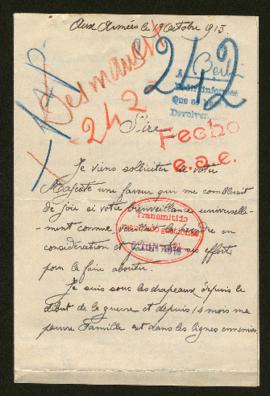 Aux Armées le 19 Octobre 1915
242
242
Fecho
e.a.c.
Devolver
Transmitido
Sire
Je viens solliciter de votre
Majesté une faveur qui me comblerait
de joie si votre bienveillance universelle-
ment connue voulait la prendre en
considération et efforts
pour la faire aboutir.
Je suis sous les drapeaux depuis le
début de la guerre et depuis 10 mois ma
pauvre Famille est dans les lignes ennemies